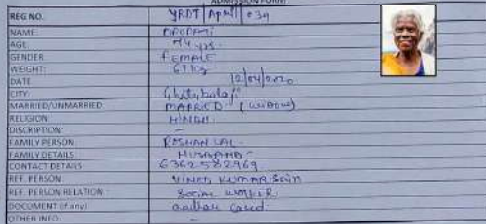 ADMISSION FORM
REG NO. YRDT/April/039
NAME
AGE 74 yrs
GENDER FEMALE
WEIGHT: 61 Kg
DATE 12/04/2020
CITY:
MARRIED/UNMARRIED MARRIED (WIDOW)
RELIGION HINDU
DISCRIPTION: -
FAMILY PERSON ROSHAN LAL
FAMILY DETAILS HUSBAND
CONTACT DETAILS 6362582969
REF. PERSON VINOD KUMAR SAIN
REF. PERSON RELATION SOCIAL WORKER
DOCUMENT (if any) aadhar card
OTHER INFO. -